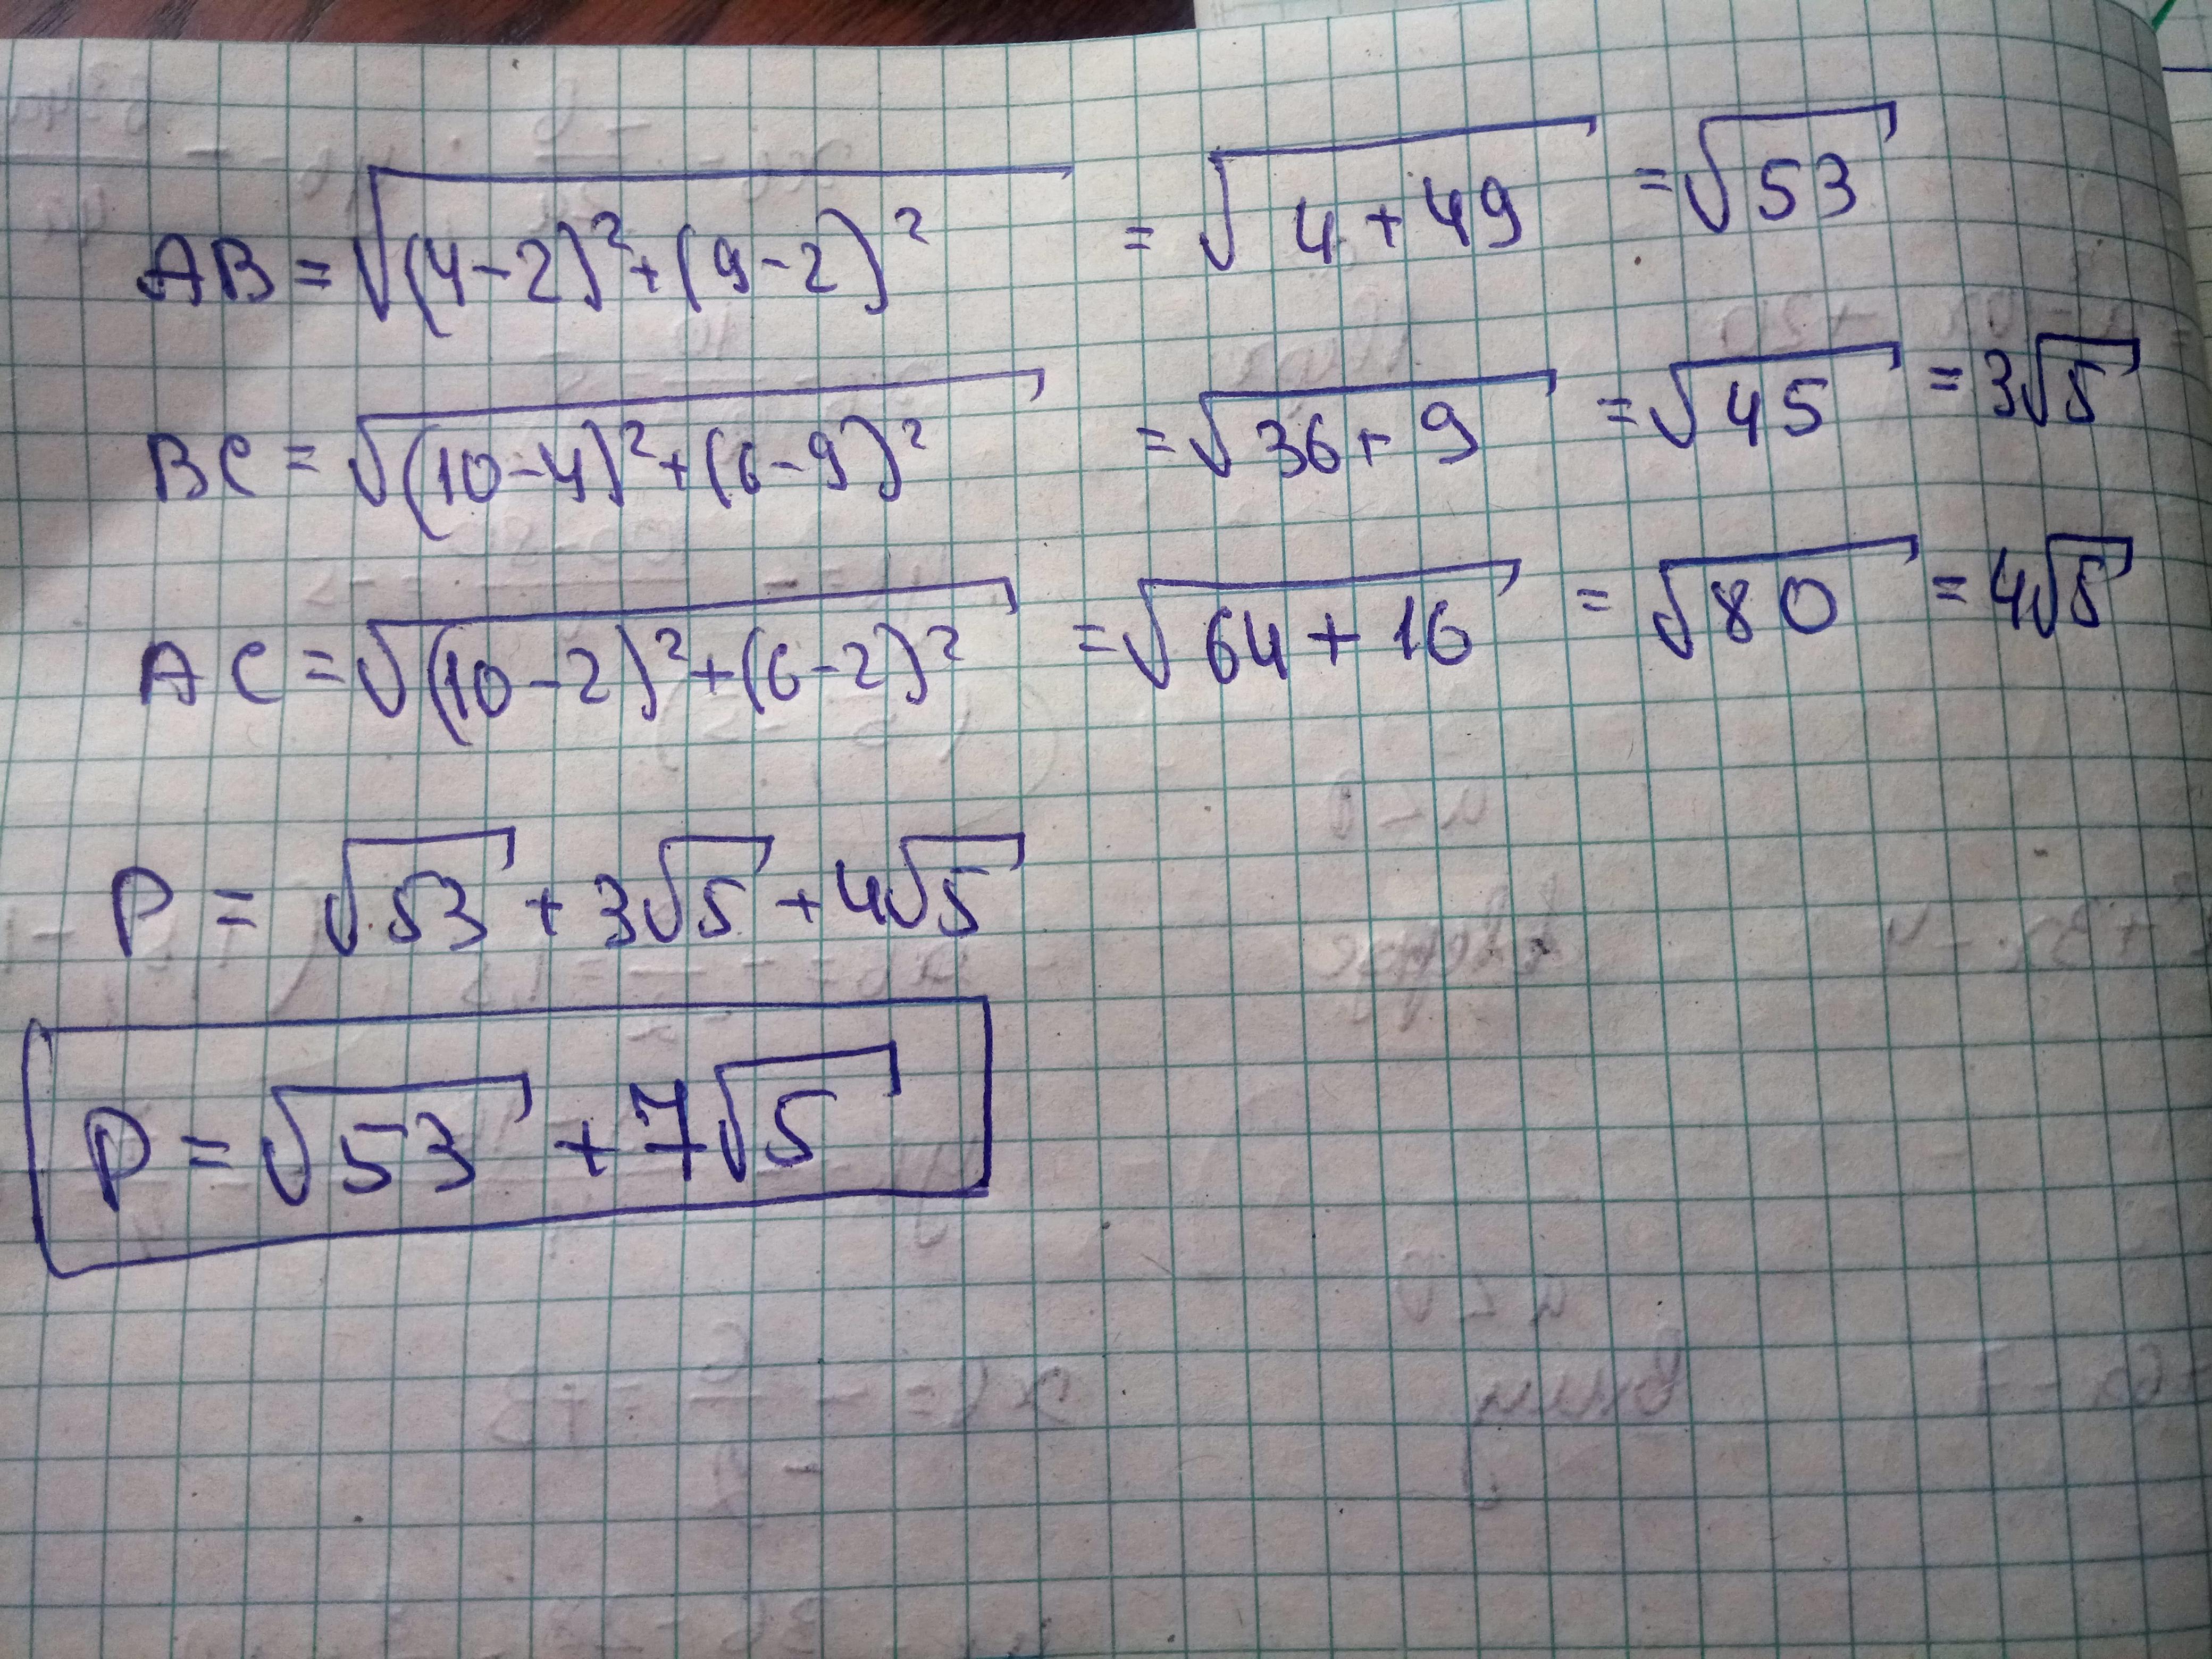 AB = √(4-2)²+(9-2)² = √4+49 = √53
BC = √(10-4)²+(6-9)² = √36+9 = √45 = 3√5
AC = √(10-2)²+(6-2)² = √64+16 = √80 = 4√5
P = √53 + 3√5 + 4√5
P = √53 + 7√5